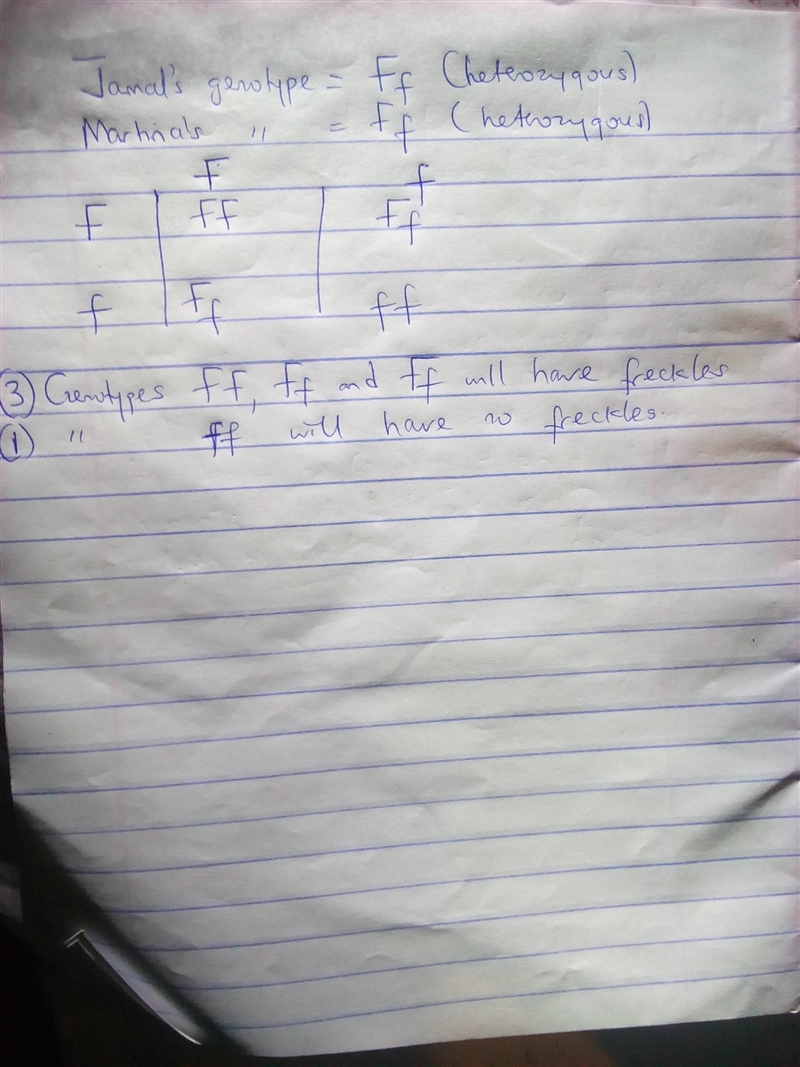 Jamal's genotype = Ff (heterozygous)
Martina's " = Ff (hetherozygous)
F f
F FF Ff
f Ff ff
③ Genotypes FF, Ff and Ff will have freckles
① " ff will have no freckles.